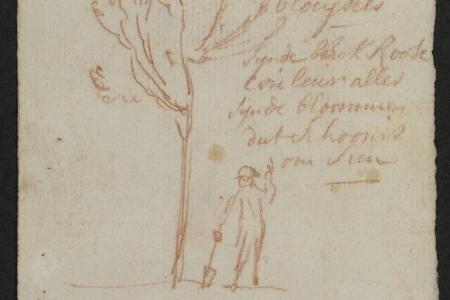 bloijsels
synde bleek Roose
couleur alles
synde blommen
dat schoon is
om sien